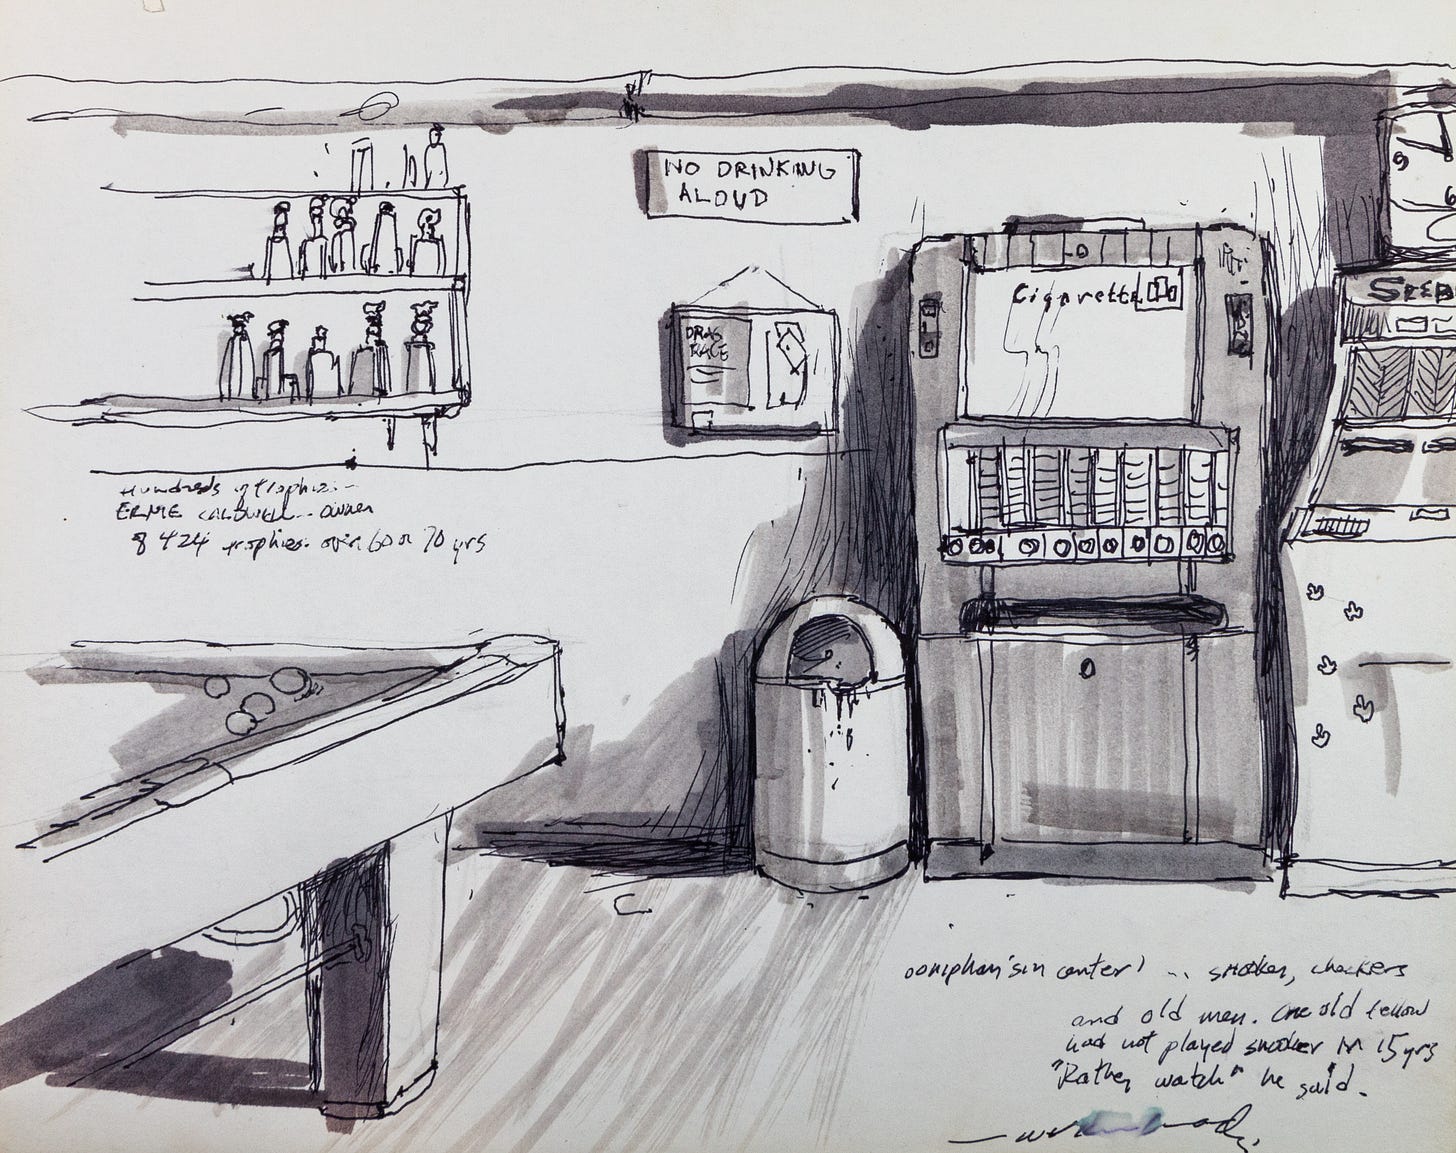 NO DRINKING
ALOUD
Cigarette
DRAG
RACE
SEEB
Hundreds of trophies --
ERNIE CALDWELL -- owner
8 424 trophies. over 60 or 70 yrs
center) -- snooker, checkers
and old men. One old fellow
had not played snooker in 15 yrs
"Rather watch" he said.